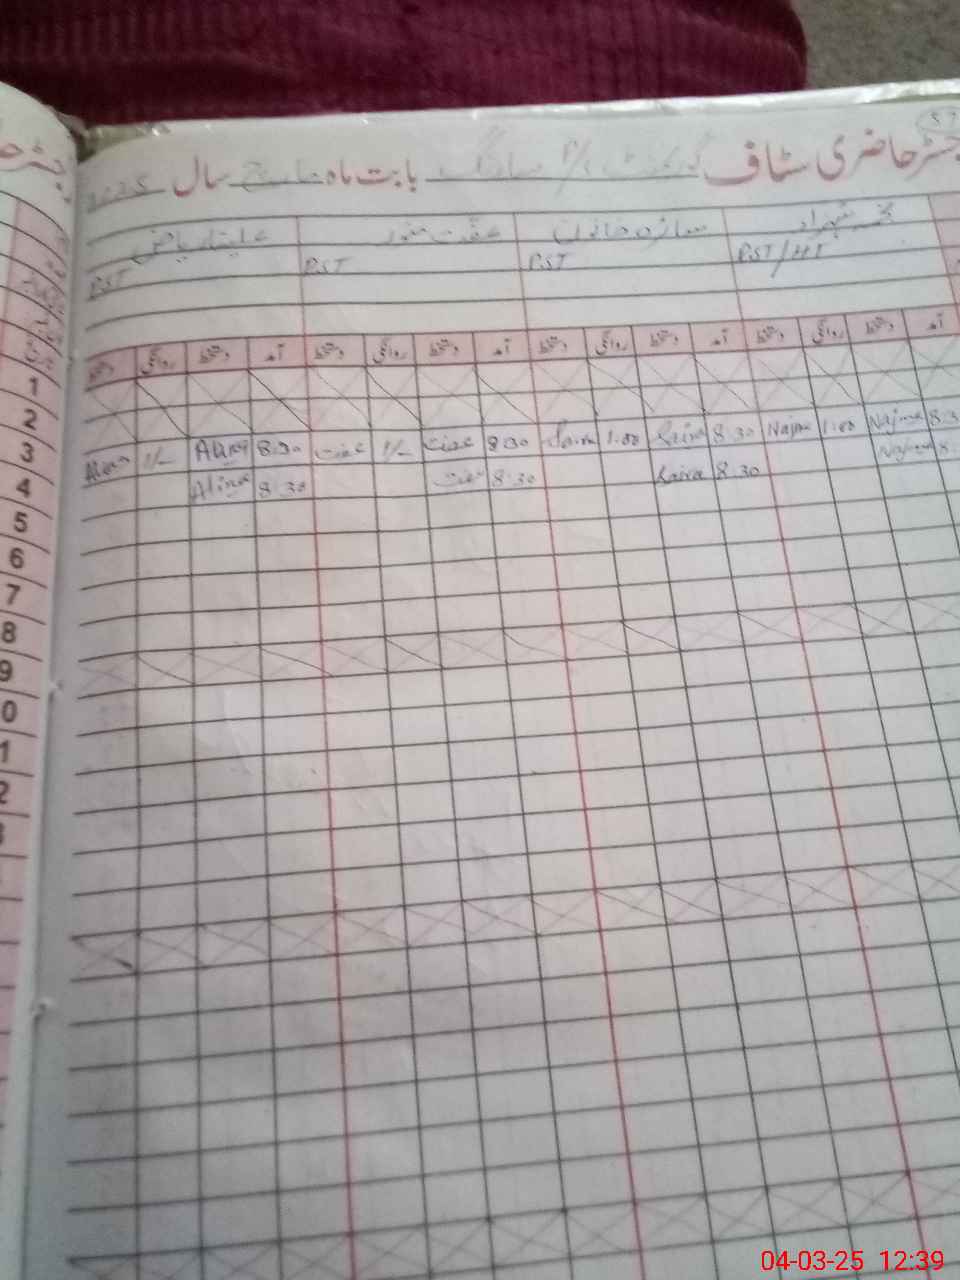 رجسٹر حاضری سٹاف گورنمنٹ P/S بابت ماہ مارچ سال 2025
نجمہ شہزاد سائرہ خاتون عفت علینہ ریاض
PST/HT PST PST PST
آمد دستخط روانگی دستخط آمد دستخط روانگی دستخط آمد دستخط روانگی دستخط آمد دستخط روانگی دستخط
1
2
3 Alina 1/- Alina 8:30 عفت 1/- عفت 8:30 Saira 1:00 Saira 8:30 Najma 1:00 Najma 8:3
4 Alina 8:30 عفت 8:30 Saira 8:30 Najma 8:
5
6
7
8
9
0
1
2
3
04-03-25 12:39